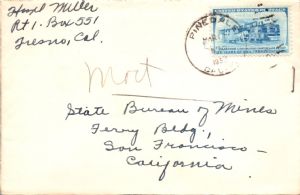 Hazel Miller
Rt 1. Box 551
Fresno, Cal.
PINEDALE
MAR
CALIF
Mort
State Bureau of Mines
Ferry Bldg.,
San Francisco-
California